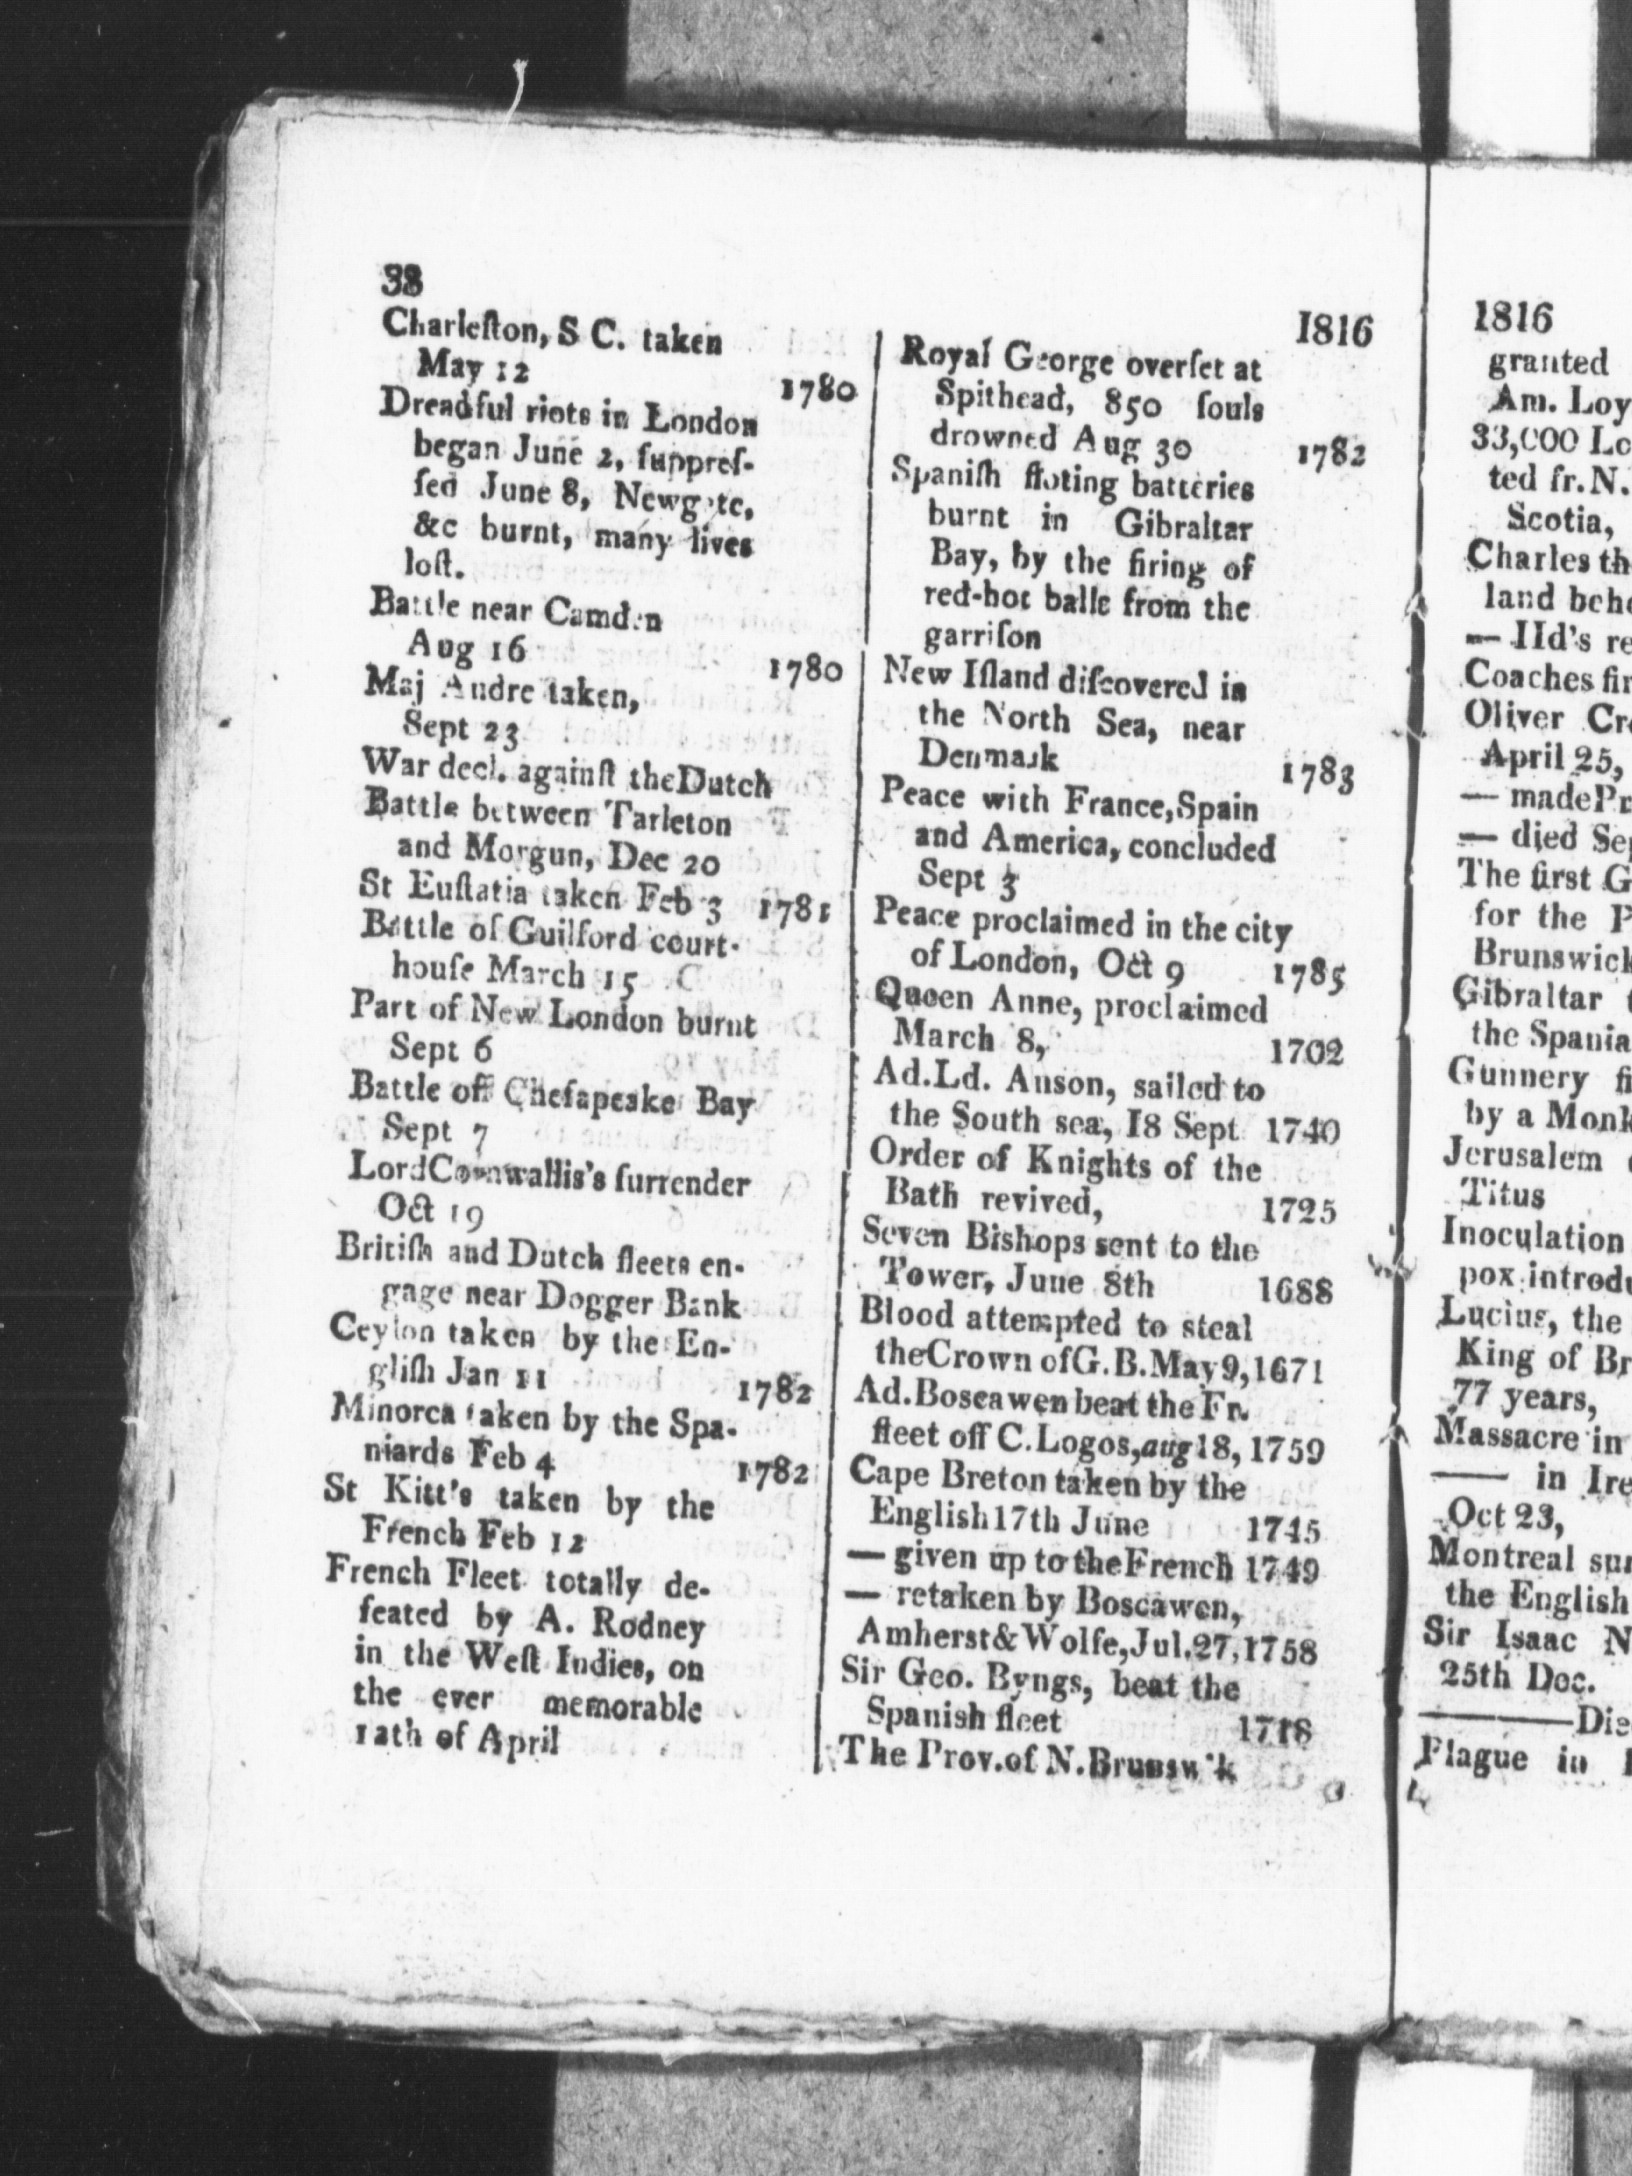 38
Charleſton, S C. taken
May 12 1780
Dreadful riots in London
began June 2, ſuppreſ-
ſed June 8, Newgate,
&c burnt, many lives
loſt.
Battle near Camden
Aug 16 1780
Maj Andre taken,
Sept 23
War decl. againſt theDutch
Battle between Tarleton
and Morgun, Dec 20
St Euſtatia taken Feb 3 1781
Battle of Guilford court-
houſe March 15
Part of New London burnt
Sept 6
Battle off Cheſapeake Bay
Sept 7
LordCornwallis's ſurrender
Oct 19
Britiſh and Dutch fleets en-
gage near Dogger Bank
Ceylon taken by the En-
gliſh Jan 11 1782
Minorca taken by the Spa-
niards Feb 4 1782
St Kitt's taken by the
French Feb 12
French Fleet totally de-
feated by A. Rodney
in the Weſt Indies, on
the ever memorable
12th of April
1816
Royal George overſet at
Spithead, 850 ſouls
drowned Aug 30 1782
Spaniſh floting batteries
burnt in Gibraltar
Bay, by the firing of
red-hot balls from the
garriſon
New Iſland diſcovered in
the North Sea, near
Denmark 1783
Peace with France,Spain
and America, concluded
Sept 3
Peace proclaimed in the city
of London, Oct 9 1785
Queen Anne, proclaimed
March 8, 1702
Ad.Ld. Anson, sailed to
the South sea, 18 Sept 1740
Order of Knights of the
Bath revived, 1725
Seven Bishops sent to the
Tower, June 8th 1688
Blood attempted to steal
theCrown ofG.B.May9,1671
Ad.Boscawen beat the Fr.
fleet off C.Logos,aug18, 1759
Cape Breton taken by the
English17th June 1745
— given up to theFrench 1749
— retaken by Boscawen,
Amherst&Wolfe,Jul.27,1758
Sir Geo. Byngs, beat the
Spanish fleet 1718
The Prov.of N.Brunswik
1816
granted
Am. Loy
33,000 Lo
ted fr.N.
Scotia,
Charles th
land behe
— IId's re
Coaches fir
Oliver Cro
April 25,
— madePr
— died Sep
The first G
for the P
Brunswick
Gibraltar
the Spania
Gunnery fi
by a Monk
Jerusalem
Titus
Inoculation
pox introdu
Lucius, the
King of Br
77 years,
Massacre in
—— in Ire
Oct 23,
Montreal sur
the English
Sir Isaac N
25th Dec.
————Die
Plague in